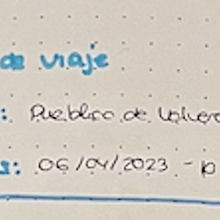 de viaje
: Pueblico de Valverd
s: 06/04/2023 - 10